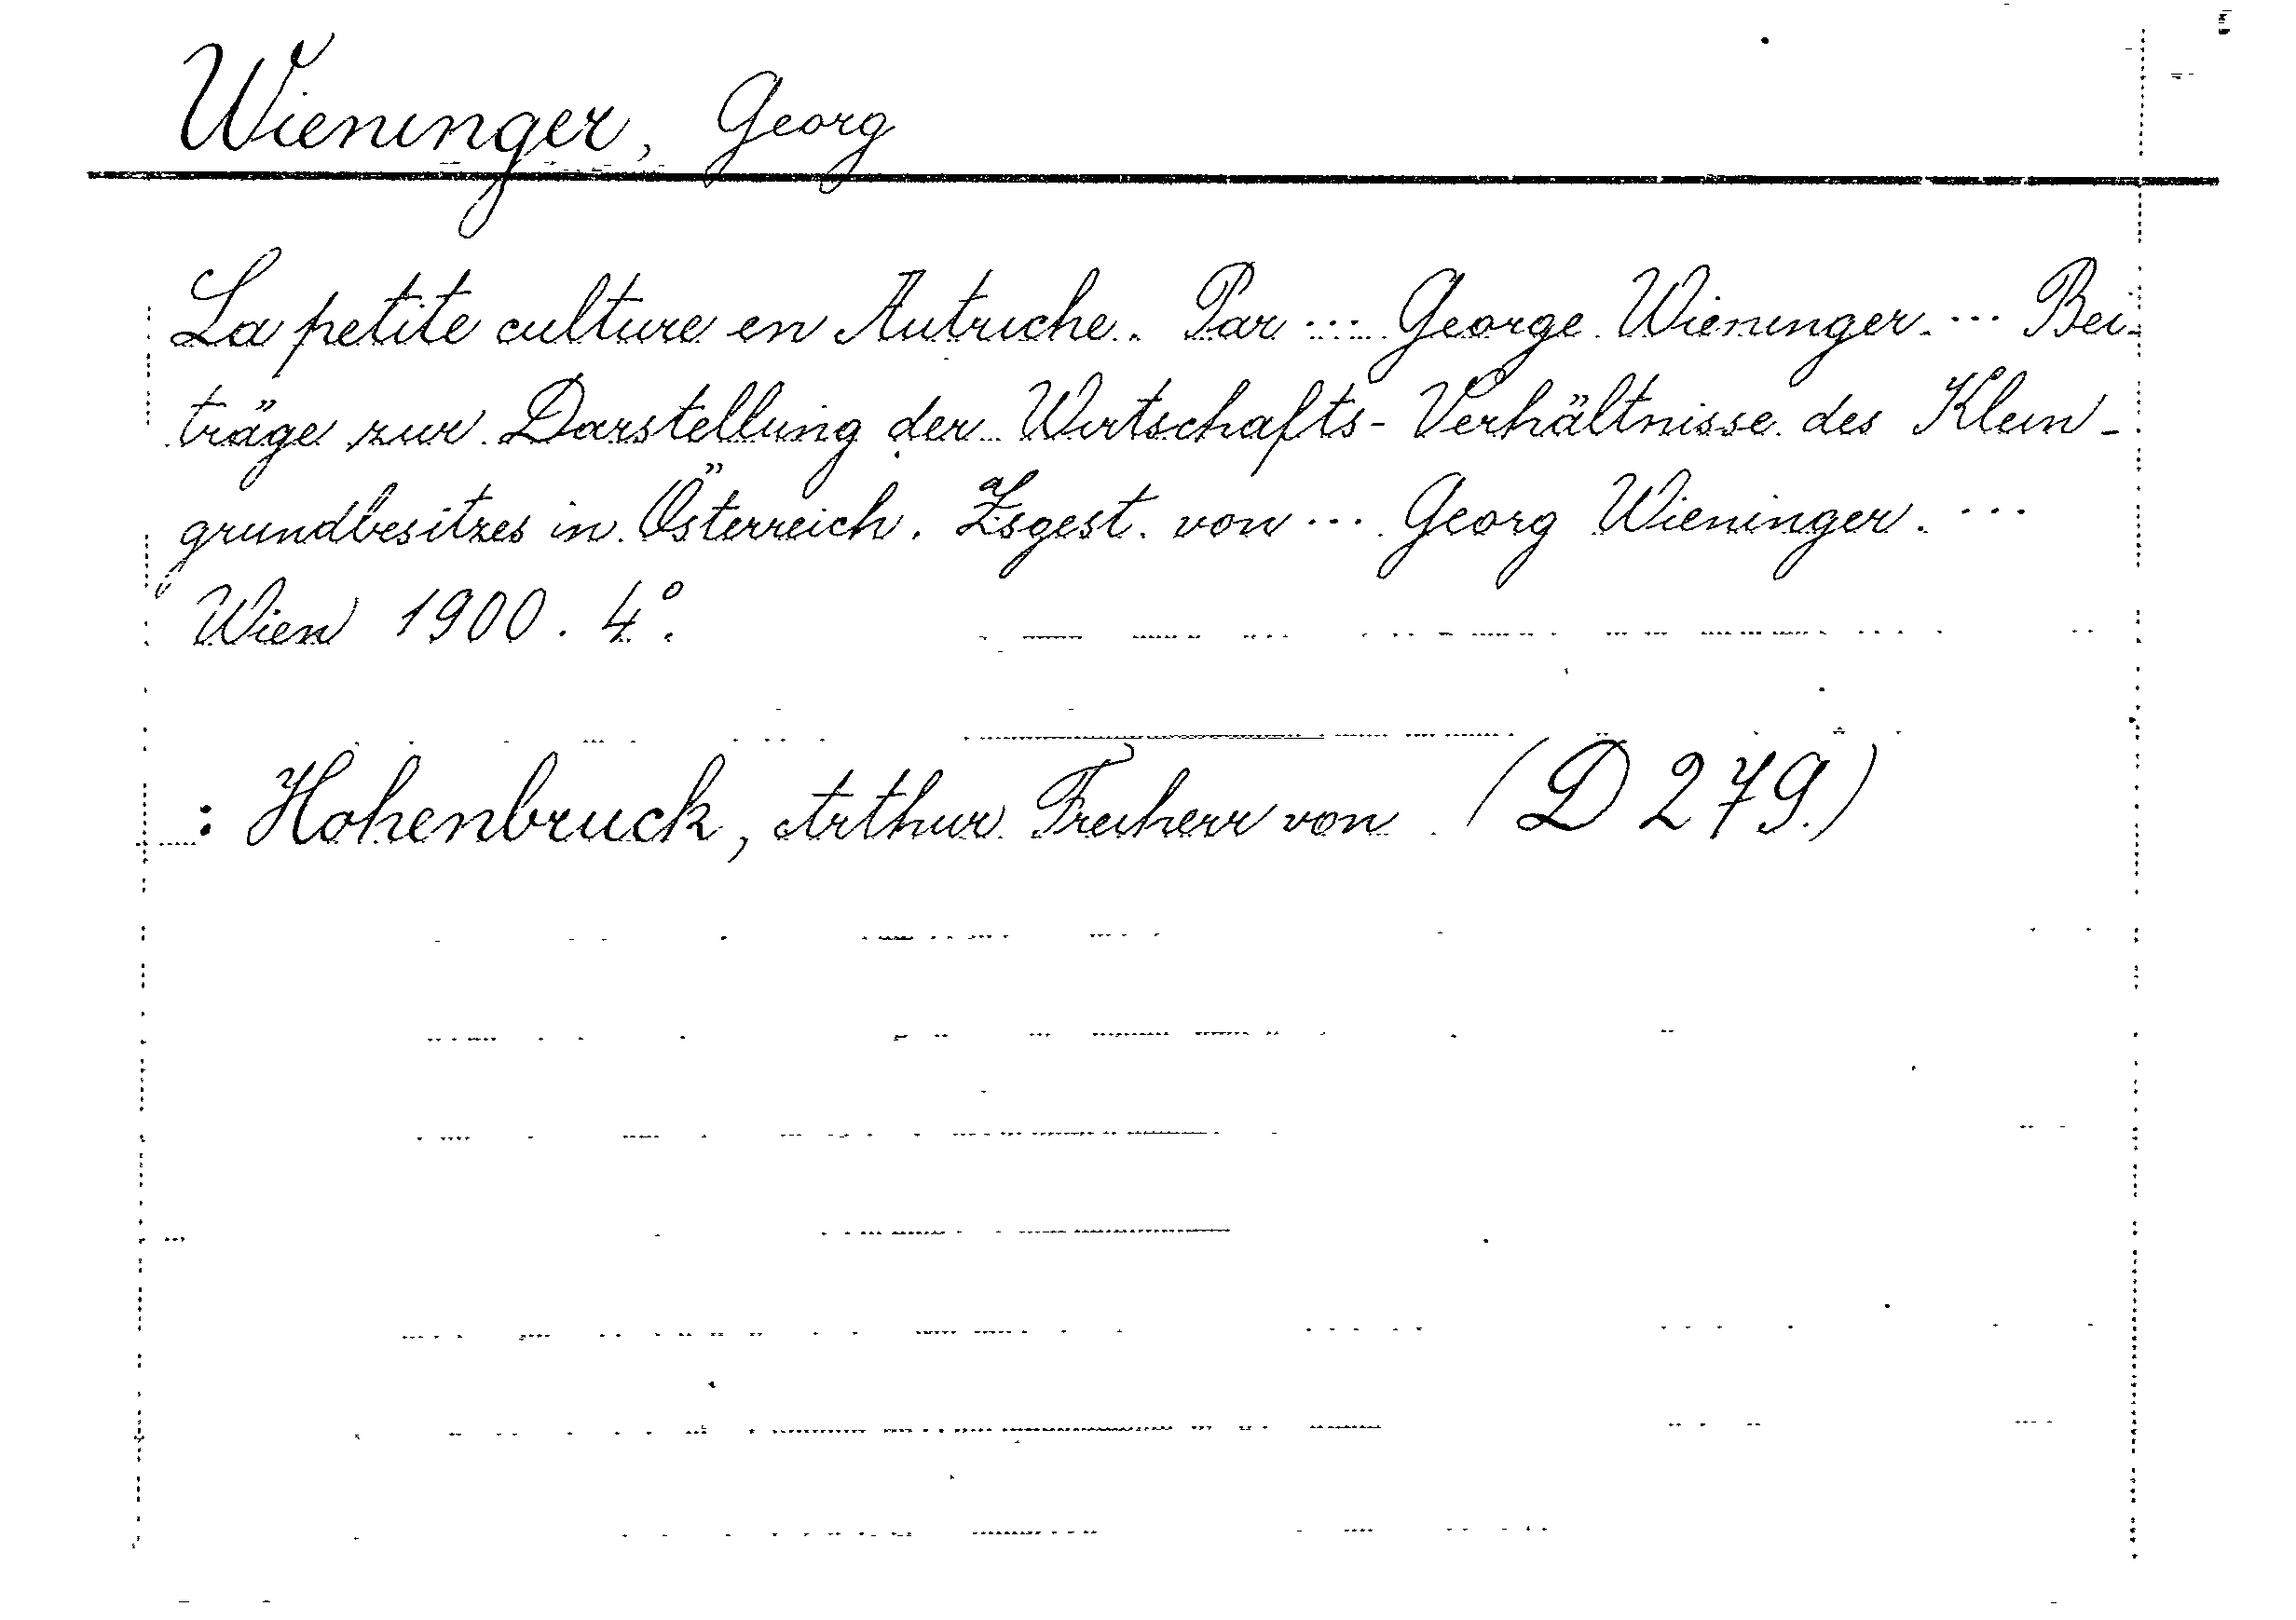 Wieninger, Georg
La petite culture en Autriche. Par ... George Wieninger. ... Bei-
träge zur Darstellung der Wirtschafts-Verhältnisse des Klein-
grundbesitzes in Österreich. Zsgest. von ... Georg Wieninger. ...
Wien 1900. 4°.
: Hohenbruck, Arthur Freiherr von (D 279)